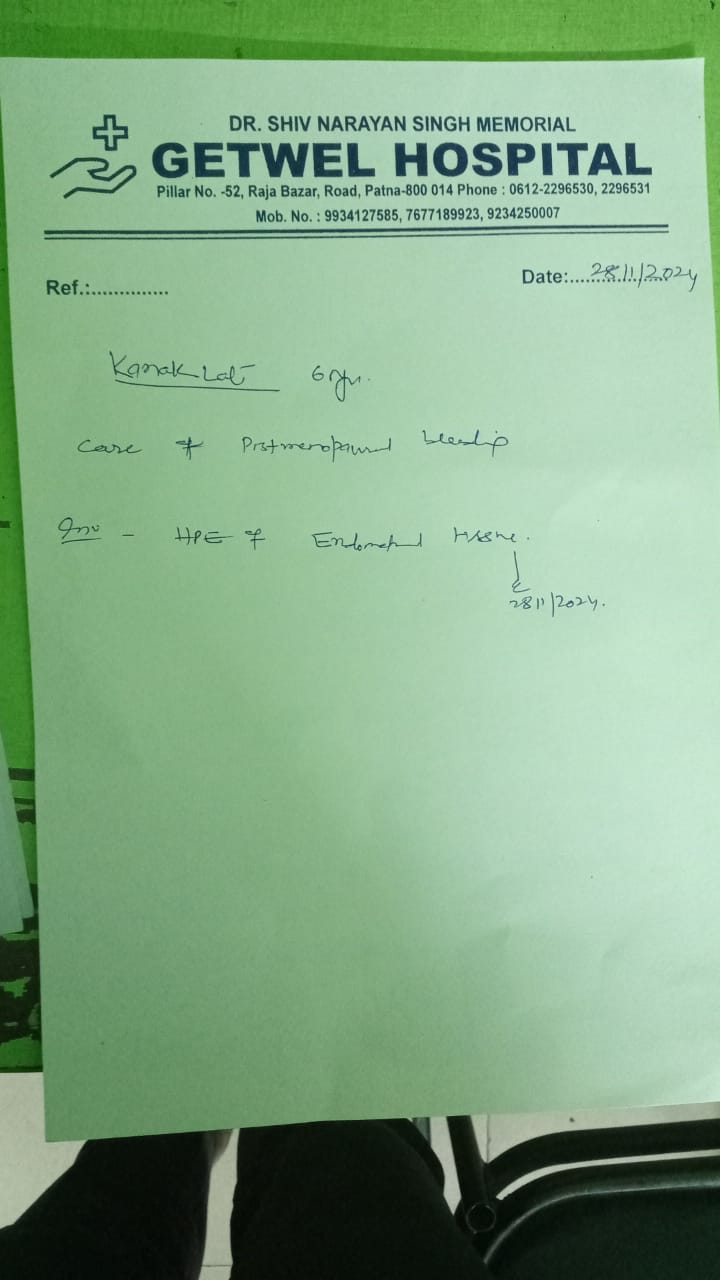 DR. SHIV NARAYAN SINGH MEMORIAL
GETWEL HOSPITAL
Pillar No. -52, Raja Bazar, Road, Patna-800 014 Phone : 0612-2296530, 2296531
Mob. No. : 9934127585, 7677189923, 9234250007
Ref.:..............
Date:...28/11/2024
Kanak Lat
Case of Postmenopausal bleeding
Inv - HPE of Endometrial tissue.
2811/2024.